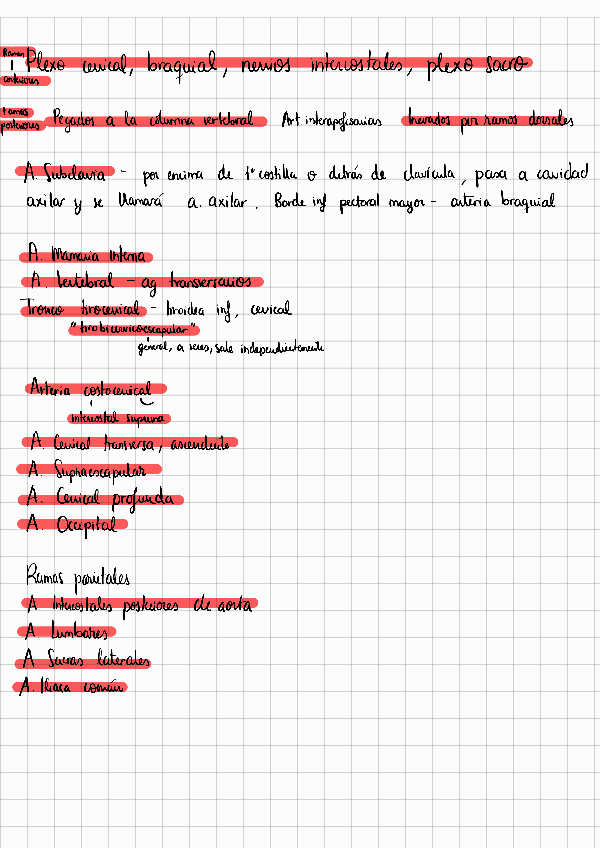 Ramos anteriores
Plexo cervical, braquial, nervios intercostales, plexo sacro
ramos posteriores
Pegados a la columna vertebral Art. interapofisarias Inervados por ramos dorsales
A. Subclavia - por encima de 1ª costilla o detrás de clavícula, pasa a cavidad
axilar y se llamará a. axilar. Borde inf pectoral mayor - arteria braquial
A. Mamaria interna
A. Vertebral - ag transversarios
Tronco tirocervical - tiroidea inf, cervical
"tirobicervicoescapular"
general, a veces, sale independientemente
Arteria costocervical
intercostal suprema
A. Cervical transversa, ascendente
A. Supraescapular
A. Cervical profunda
A. Occipital
Ramas parietales
A Intercostales posteriores de aorta
A Lumbares
A Sacras laterales
A. Iliaca común